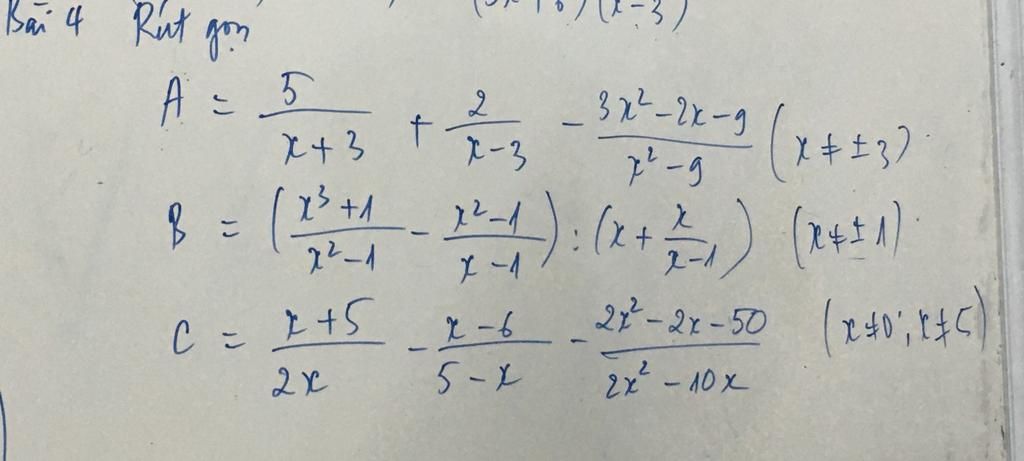 (x-3)
Bài 4 Rút gọn
A = 5/(x+3) + 2/(x-3) - (3x² - 2x - 9)/(x² - 9) (x ≠ ±3)
B = ((x³+1)/(x²-1) - (x²-1)/(x-1)) : (x + x/(x-1)) (x ≠ ±1)
C = (x+5)/(2x) - (x-6)/(5-x) - (2x² - 2x - 50)/(2x² - 10x) (x ≠ 0; x ≠ 5)